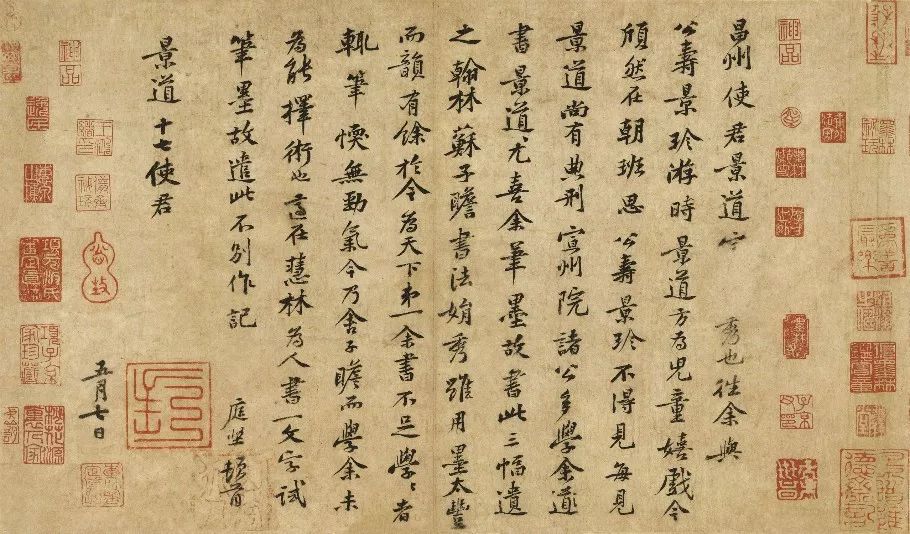 昌州使君景道宗秀也往余與
公壽景珍游時景道方為兒童嬉戲今
頎然在朝班思公壽景珍不得見每見
景道尚有典刑宣州院諸公多學余
書景道尤喜余筆墨故書此三幅遺
之翰林蘇子瞻書法娟秀雖用墨太豐
而韻有餘於今為天下第一余書不足學學者
輒筆愞無勁氣今乃舍子瞻而學余未
為能擇術也適在慧林為人書一文字試
筆墨故遣此不別作記
庭堅頓首
景道十七使君
五月七日
神品
神品
項元汴氏審定真蹟
項子京家珍藏